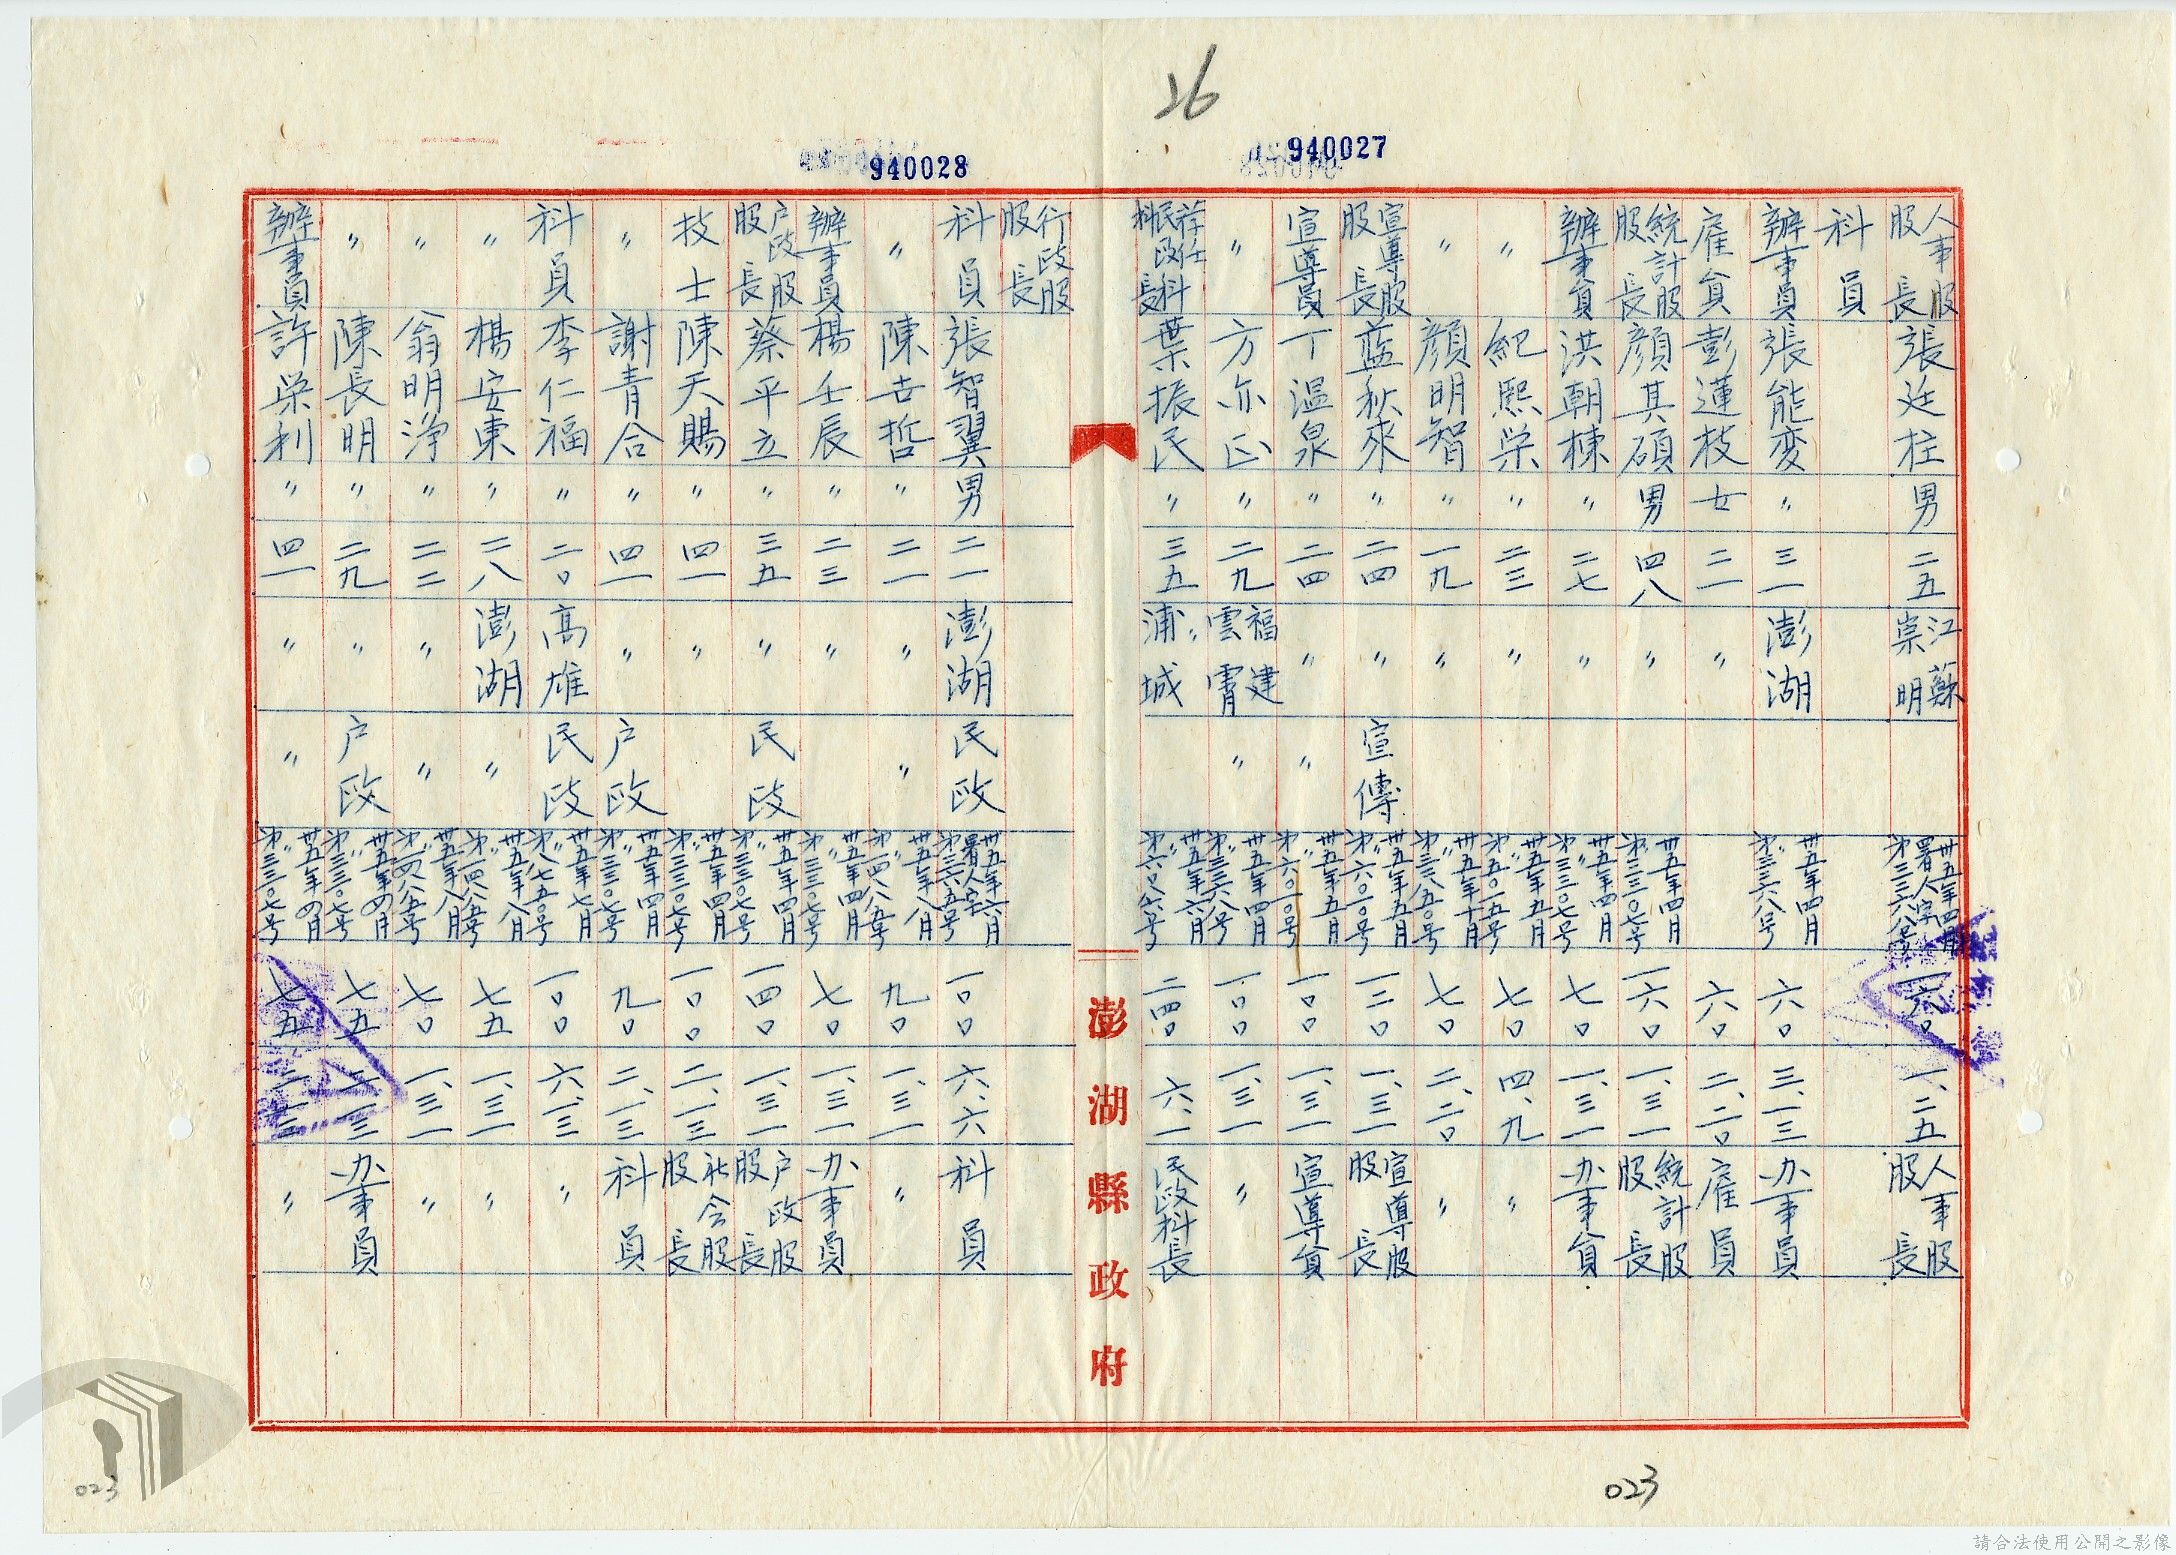 26
940027
人事股股長 張廷柱 男 二五 江蘇崇明 卅五年四月署人字第三三六八号 一六〇 一、二五 人事股股長
科員
辦事員 張能変 〃 三一 澎湖 卅五年四月 第三三六八号 六〇 三、一三 办事員
雇員 彭蓮枝 女 二一 〃 六〇 二、二〇 雇員
統計股股長 顏其碩 男 四八 〃 卅五年四月 第三三〇七号 一六〇 一、三一 統計股股長
辦事員 洪朝棟 〃 二七 〃 卅五年四月 第三三〇七号 七〇 一、三一 办事員
〃 紀熙栄 〃 二三 〃 卅五年五月 第五〇一五号 七〇 四、九 〃
〃 顏明智 〃 一九 〃 卅五年十月 七〇 二、二〇 〃
宣導股股長 藍秋來 〃 二四 〃 宣傳 卅五年五月 第六〇一〇号 一三〇 一、三一 宣導股股長
宣導員 丁溫泉 〃 二四 〃 〃 卅五年五月 第六〇一〇号 一〇〇 一、三一 宣導員
〃 方亦正 〃 二九 福建雲霄 〃 卅五年四月 第三三六八号 一〇〇 一、三一 〃
荐任民政科科長 葉振民 〃 三五 〃浦城 卅五年六月 二四〇 六、一 民政科長
澎湖縣政府
940028
行政股股長
科員 張智翼 男 二一 澎湖 民政 卅五年六月署人字 一〇〇 六、六 科員
〃 陳世哲 〃 二一 〃 〃 卅五年八月 第一四八五号 九〇 一、三一 〃
辦事員 楊壬辰 〃 二三 〃 卅五年四月 第三三〇七号 七〇 一、三一 办事員
戶政股股長 蔡平立 〃 三五 〃 民政 卅五年四月 第三三〇七号 一四〇 一、三一 戶政股股長
技士 陳天賜 〃 四一 〃 卅五年四月 第三三〇七号 一〇〇 二、一三 社会股股長
〃 謝青合 〃 四一 〃 戶政 卅五年四月 第三三〇七号 九〇 二、一三 科員
科員 李仁福 〃 二〇 高雄 民政 卅五年七月 第八七五〇号 一〇〇 六、一三 〃
〃 楊安東 〃 二八 澎湖 〃 卅五年八月 第一四八五号 七五 一、三一 〃
〃 翁明淨 〃 二二 〃 〃 卅五年八月 第一四八五号 七〇 一、三一 〃
〃 陳長明 〃 二九 〃 戶政 卅五年四月 第三三〇七号 七五 二、一三 办事員
辦事員 許栄利 〃 四一 〃 〃 卅五年四月 第三三〇七号 七五 二、一三 〃
023
023
請合法使用公開之影像